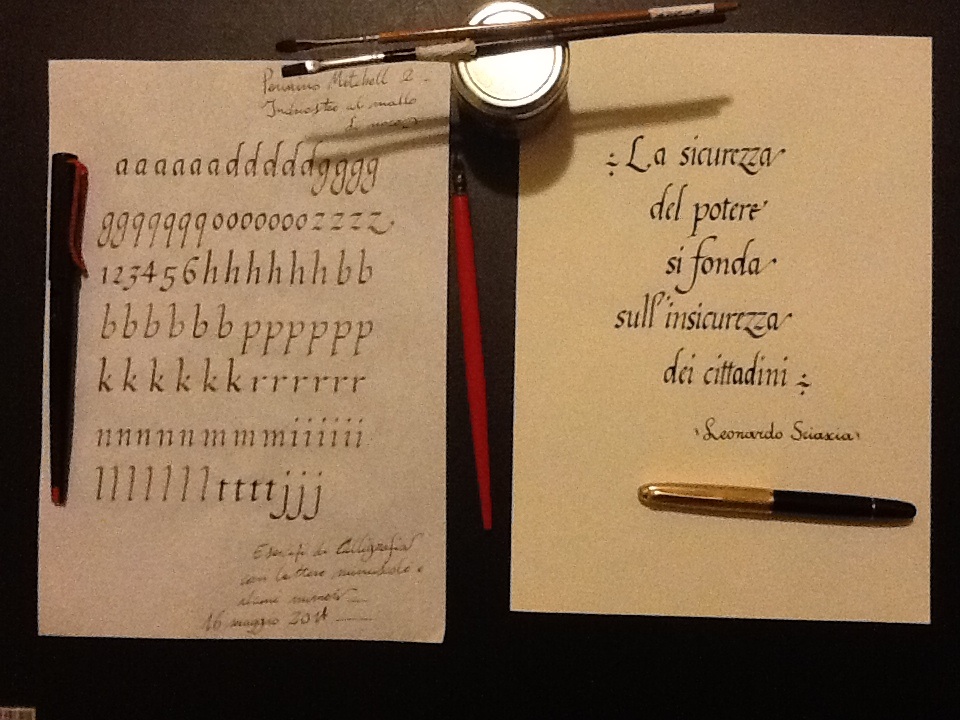 Pennino Mitchell 2
Inchiostro al mallo
di noce
aaaaaadddddgggg
ggqqqqqooooooozzzz
123456hhhhhhbb
bbbbbbpppppp
kkkkkkrrrrrr
nnnnnmmmiiiiii
lllllllttttjjj
Esercizi di Calligrafia
con lettere minuscole e
alcuni numeri
16 maggio 2014
La sicurezza
del potere
si fonda
sull'insicurezza
dei cittadini
Leonardo Sciascia